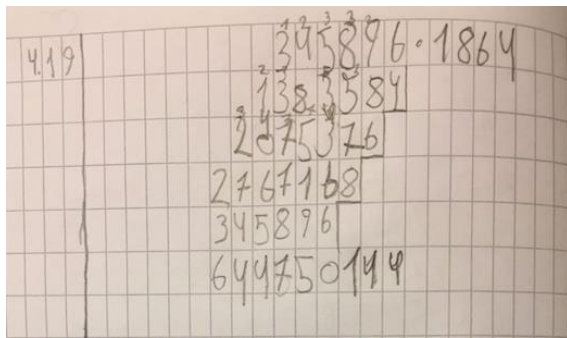 4.19
345896·1864
1383584
2075376
2767168
345896
644750144